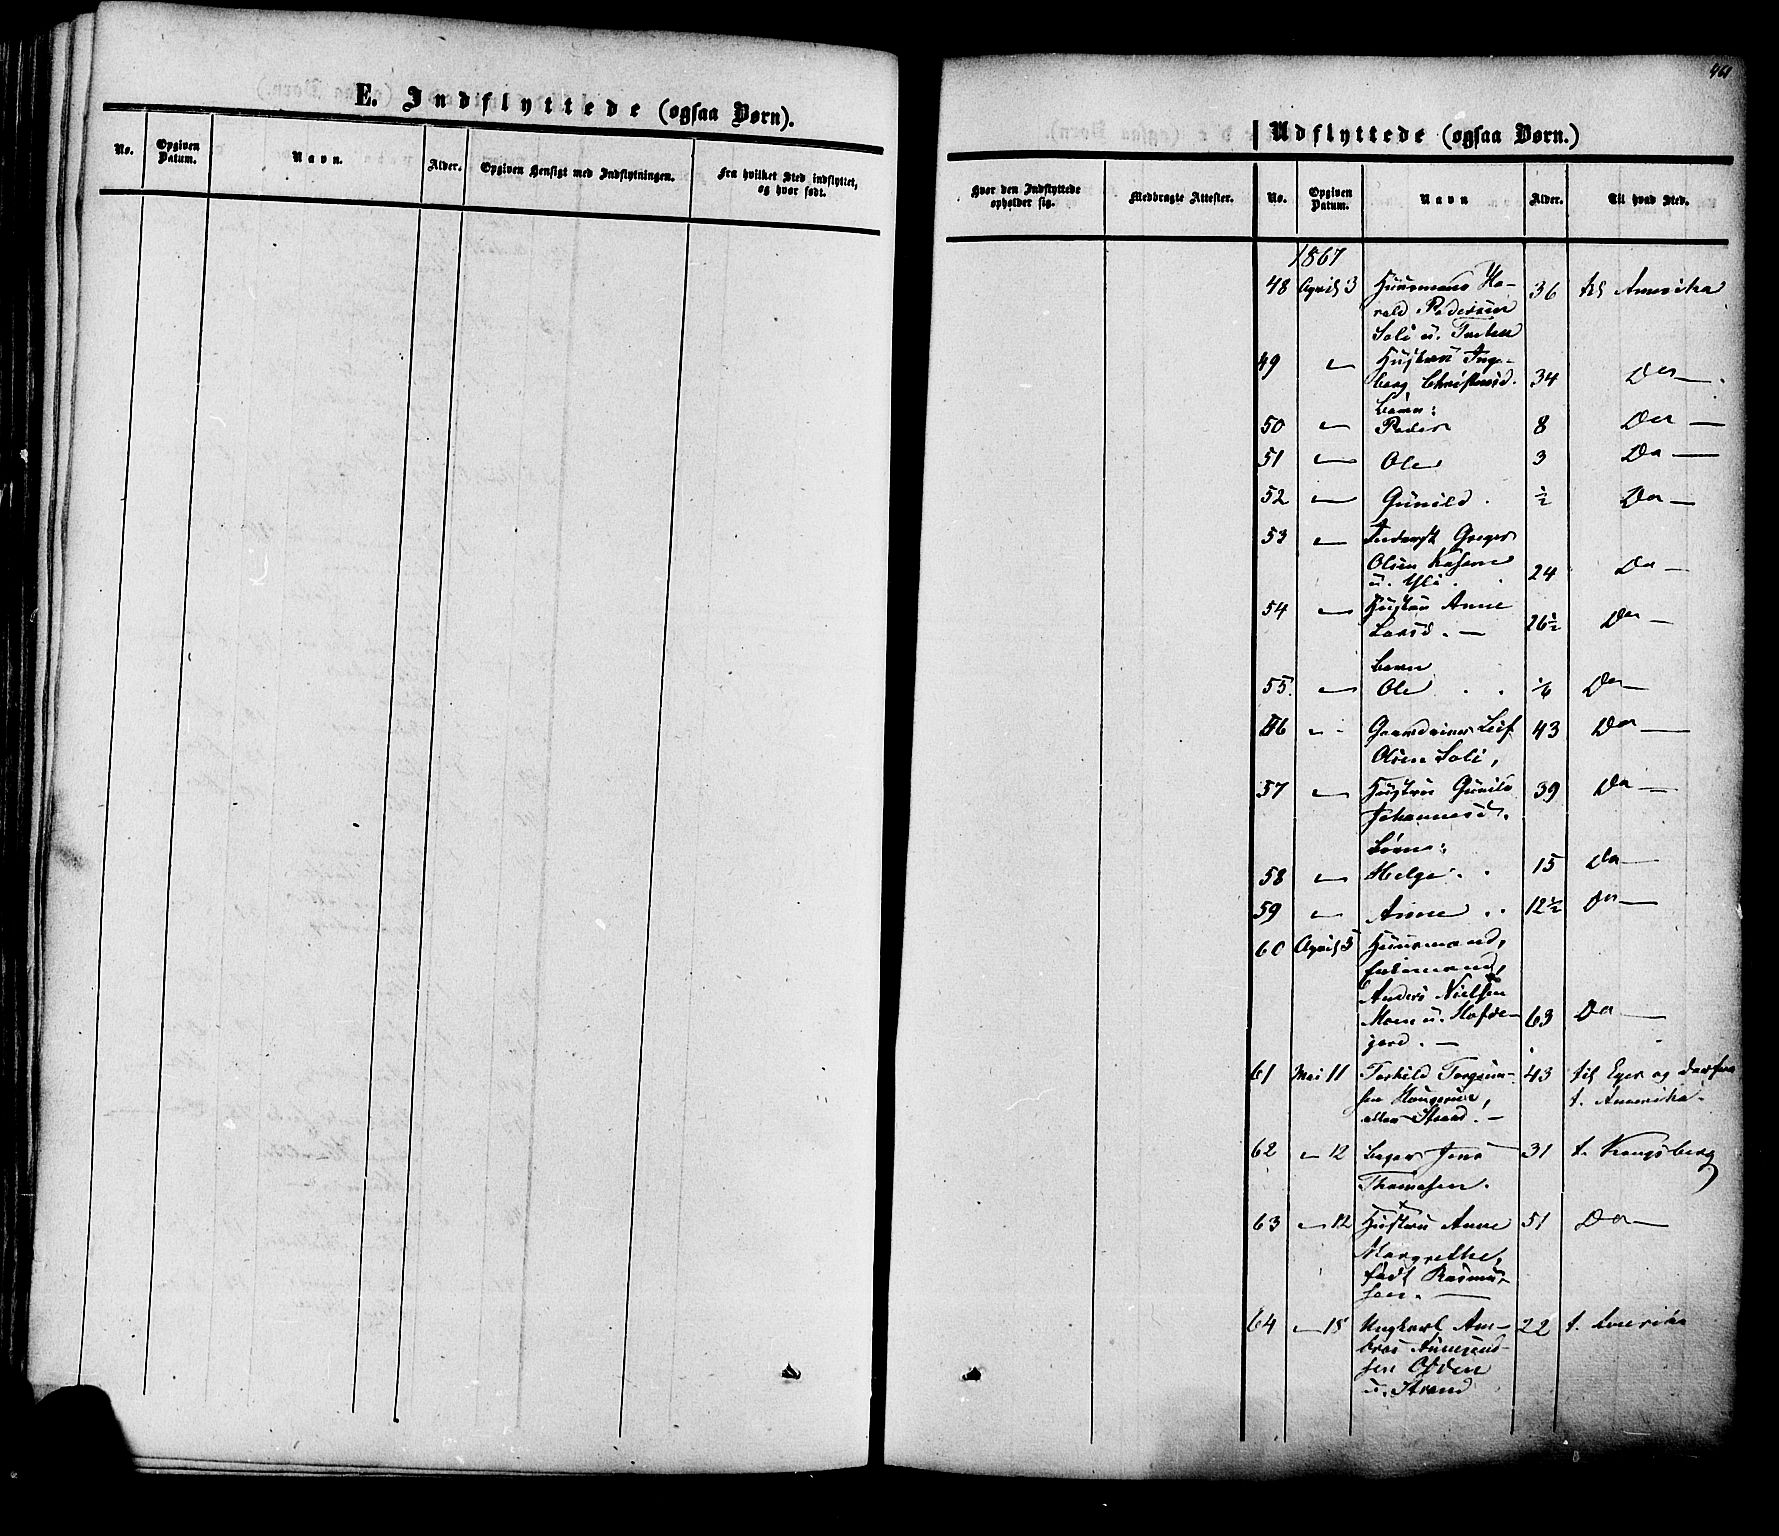 E. Indflyttede (ogsaa Børn).
No.
Opgiven Datum.
Navn.
Alder.
Opgiven Hensigt med Indflytningen.
Fra hvilket Sted indflyttet, og hvor født.
461
Udflyttede (ogsaa Børn.)
Hvor den Indflyttede opholder sig.
Medbragte Attester.
No.
Opgiven Datum.
Navn
Alder.
Til hvad Sted.
1867
48 April 3 Huusmand Ha- 36 til Amerika
rald Pedersen
Soli u. Tveten
49 " Hustru Inge-
borg Christensd. 34 Do —
Børn:
50 " Peder 8 Do —
51 " Ole 3 Do —
52 " Gunild ½ Do —
53 " Inderst Greger
Olsen 24 Do —
u. Yli
54 " Hustru Anne
Larsd. — 26½ Do —
barn
55. " Ole 1/6 Do —
56 " Gaardeier Leif 43 Do —
Olsen Soli,
57 " Hustru Gunild 39 Do —
Johannesd.
Børn:
58 " Helge 15 Do —
59 " Anne 12½ Do —
60 April 5 Huusmand,
Enkemand,
Anders Nielsen
Moen u. Hofde- 63 Do —
gard. —
61 Mai 11 Torkild Torgrim- 43 til Eger og derfra
sen Haugerne, t. Amerika.
eller Strand. —
62 " 12 Bager Jens 31 t. Kongsberg
Thomesen.
63 " 12 Hustru Anne 51 Do —
Margrethe,
født Rasmus-
sen. —
64 " 15 Ungkarl Am- 22 t. Amerika
bros Amund-
sen
u. Strand